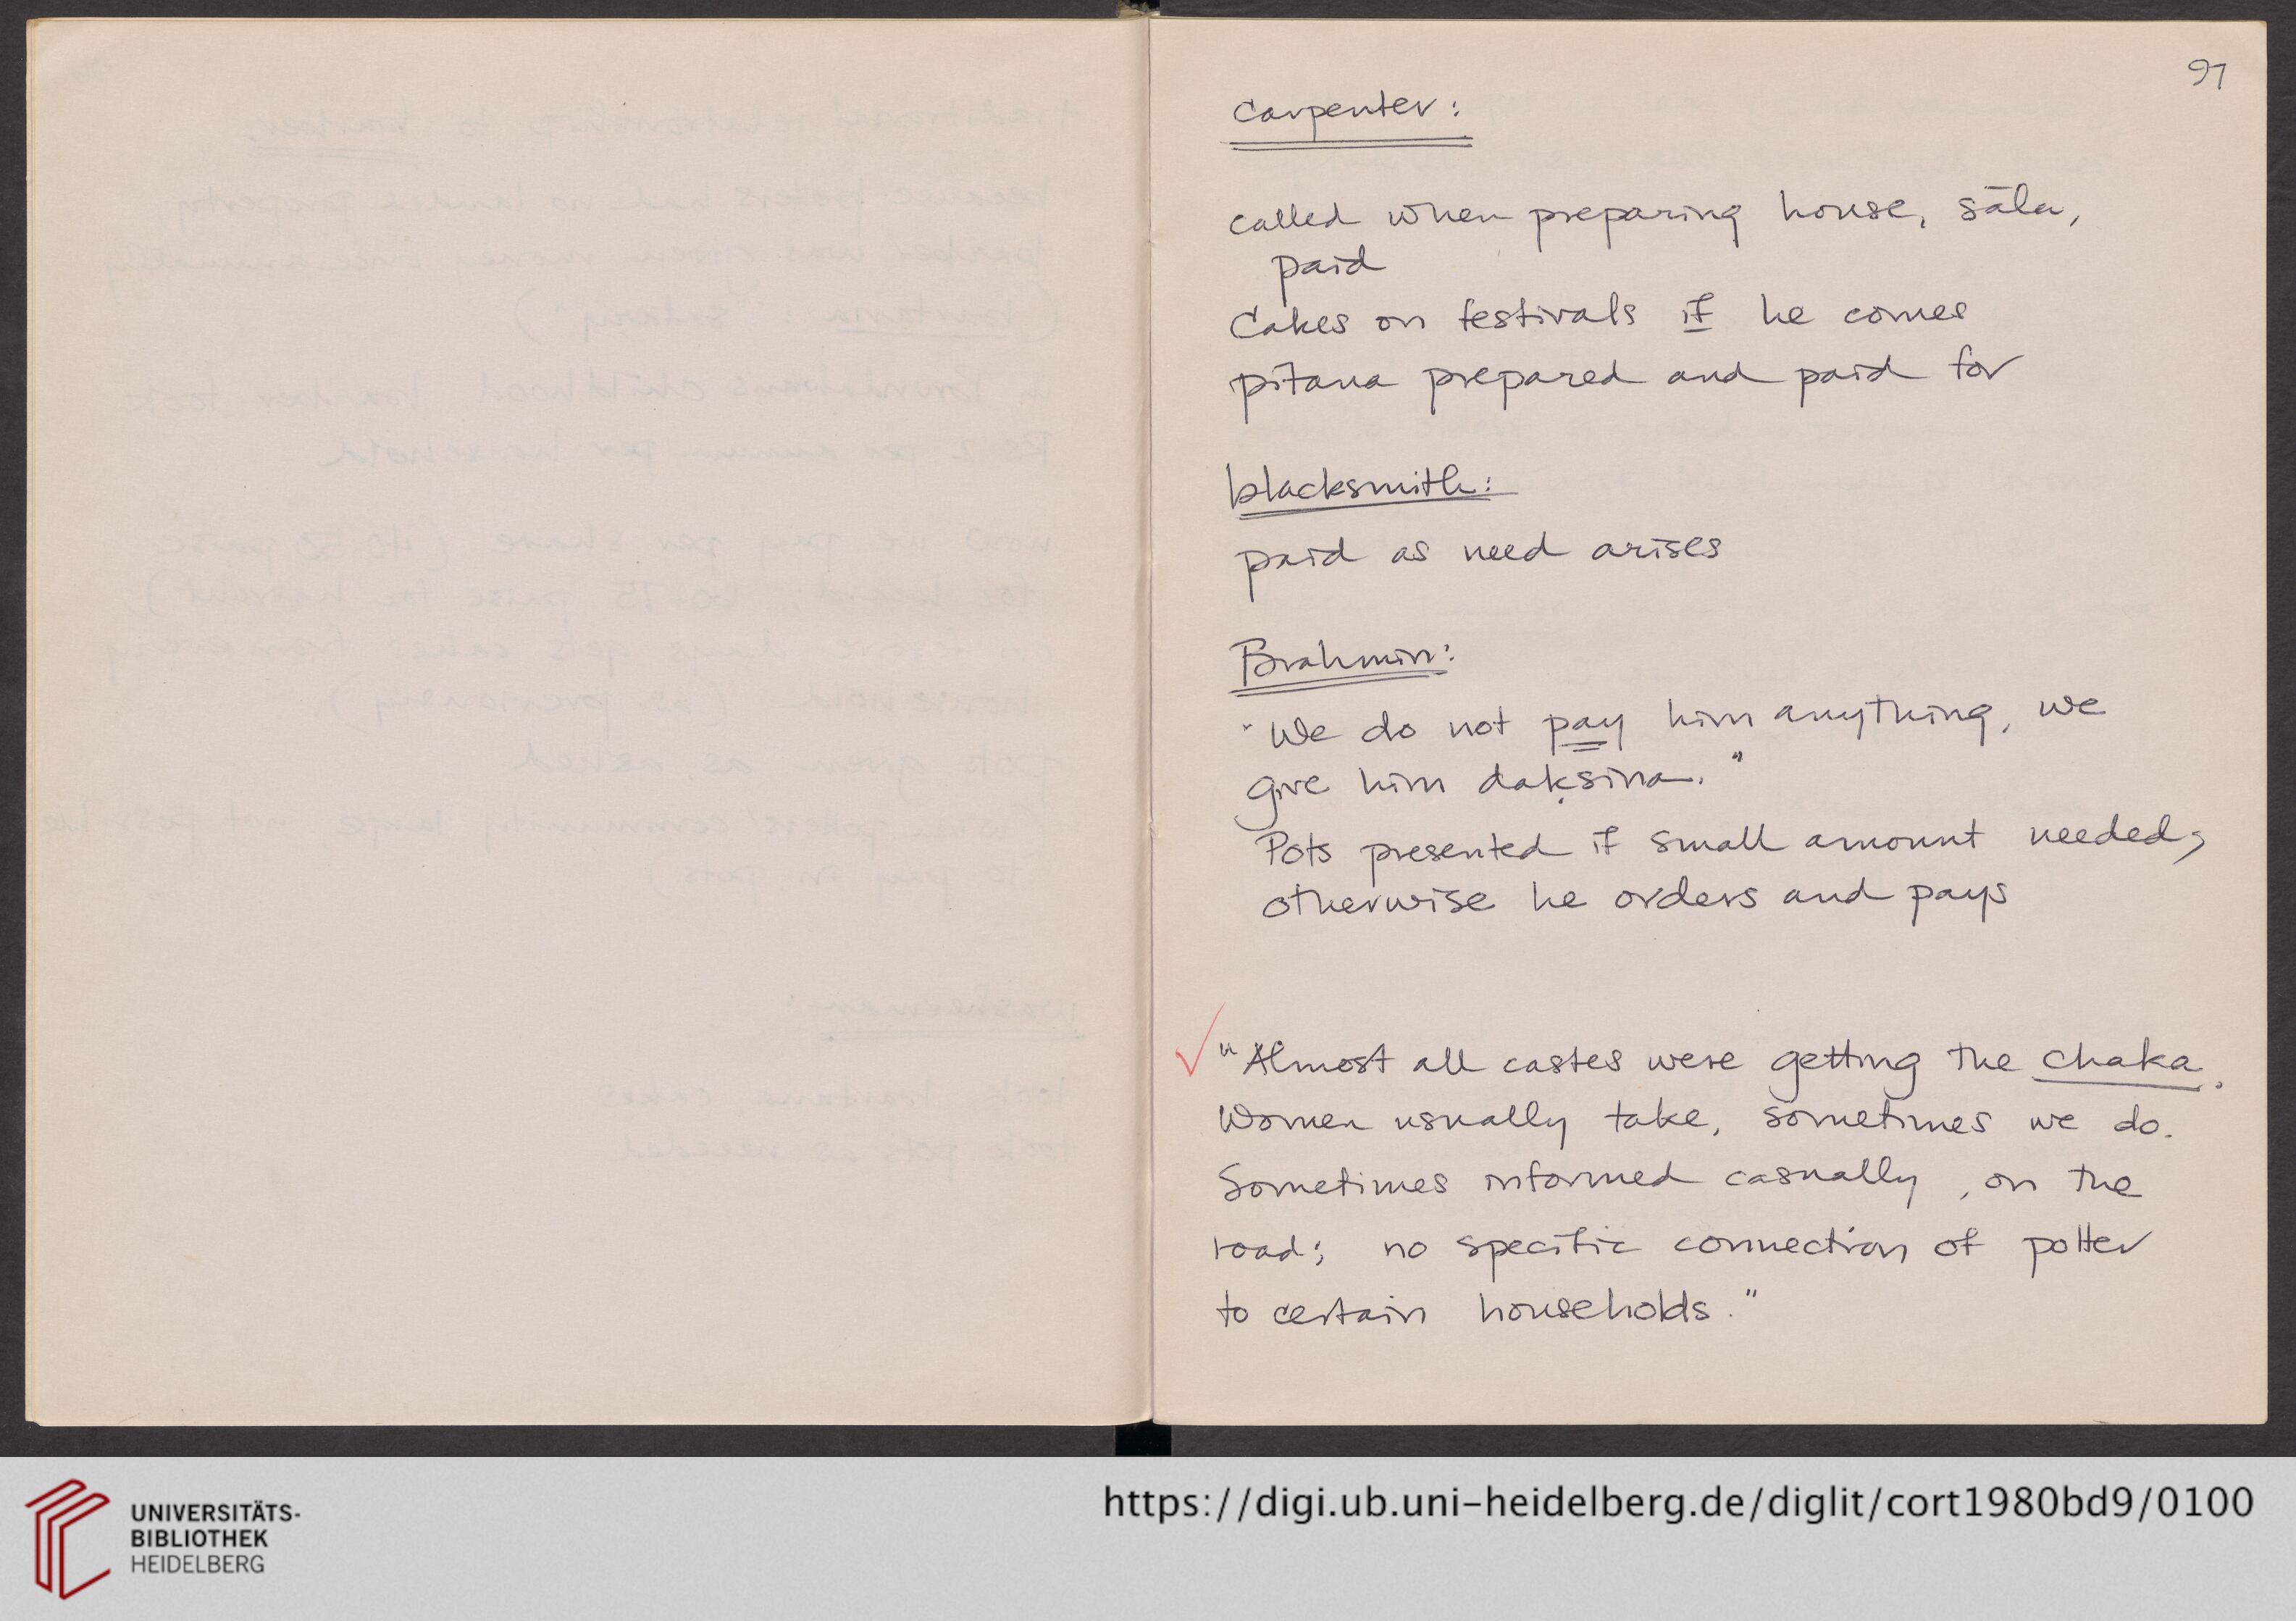 97
Carpenter:
called when preparing house, sāla,
paid
Cakes on festivals if he comes
pitana prepared and paid for
blacksmith:
paid as need arises
Brahmin:
"We do not pay him anything, we
give him dakṣina."
Pots presented if small amount needed,
otherwise he orders and pays
"Almost all castes were getting the chaka.
Women usually take, sometimes we do.
Sometimes informed casually, on the
road; no specific connection of potter
to certain households."
UNIVERSITÄTS-
BIBLIOTHEK
HEIDELBERG
https://digi.ub.uni-heidelberg.de/diglit/cort1980bd9/0100